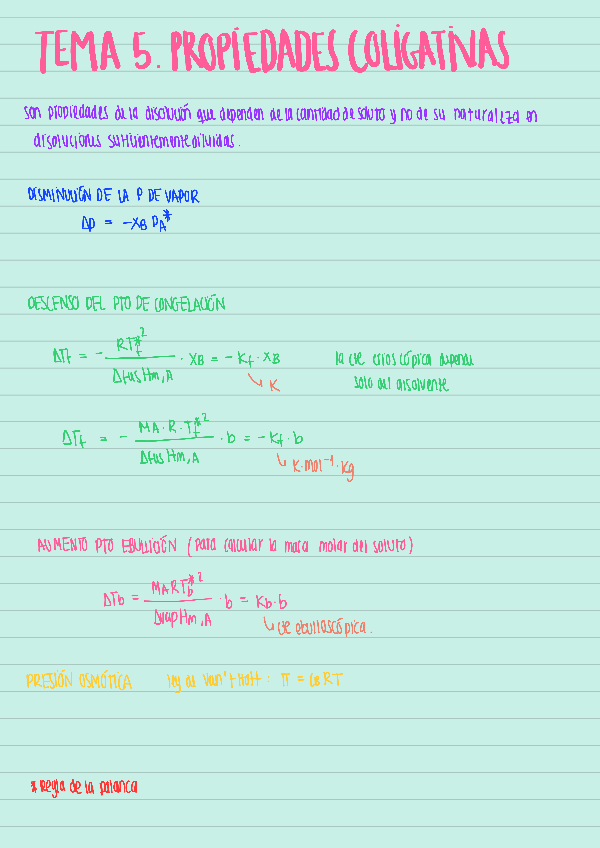 TEMA 5. PROPIEDADES COLIGATIVAS
son propiedades de la disolución que dependen de la cantidad de soluto y no de su naturaleza en
disoluciones suficientemente diluidas.
DISMINUCIÓN DE LA P DE VAPOR
Δp = -xB PA*
DESCENSO DEL PTO DE CONGELACIÓN
ΔTf = - RTf*² / ΔfusHm,A · xB = - Kf · xB
la cte crioscópica depende
solo del disolvente
↳ K
ΔTf = - MA·R·Tf*² / ΔfusHm,A · b = - Kf · b
↳ K·mol⁻¹·Kg
AUMENTO PTO EBULLICIÓN (para calcular la masa molar del soluto)
ΔTb = MARTb*² / ΔvapHm,A · b = Kb·b
↳ cte ebulloscópica.
PRESIÓN OSMÓTICA ley de Van't Hoff: π = cBRT
* Regla de la palanca